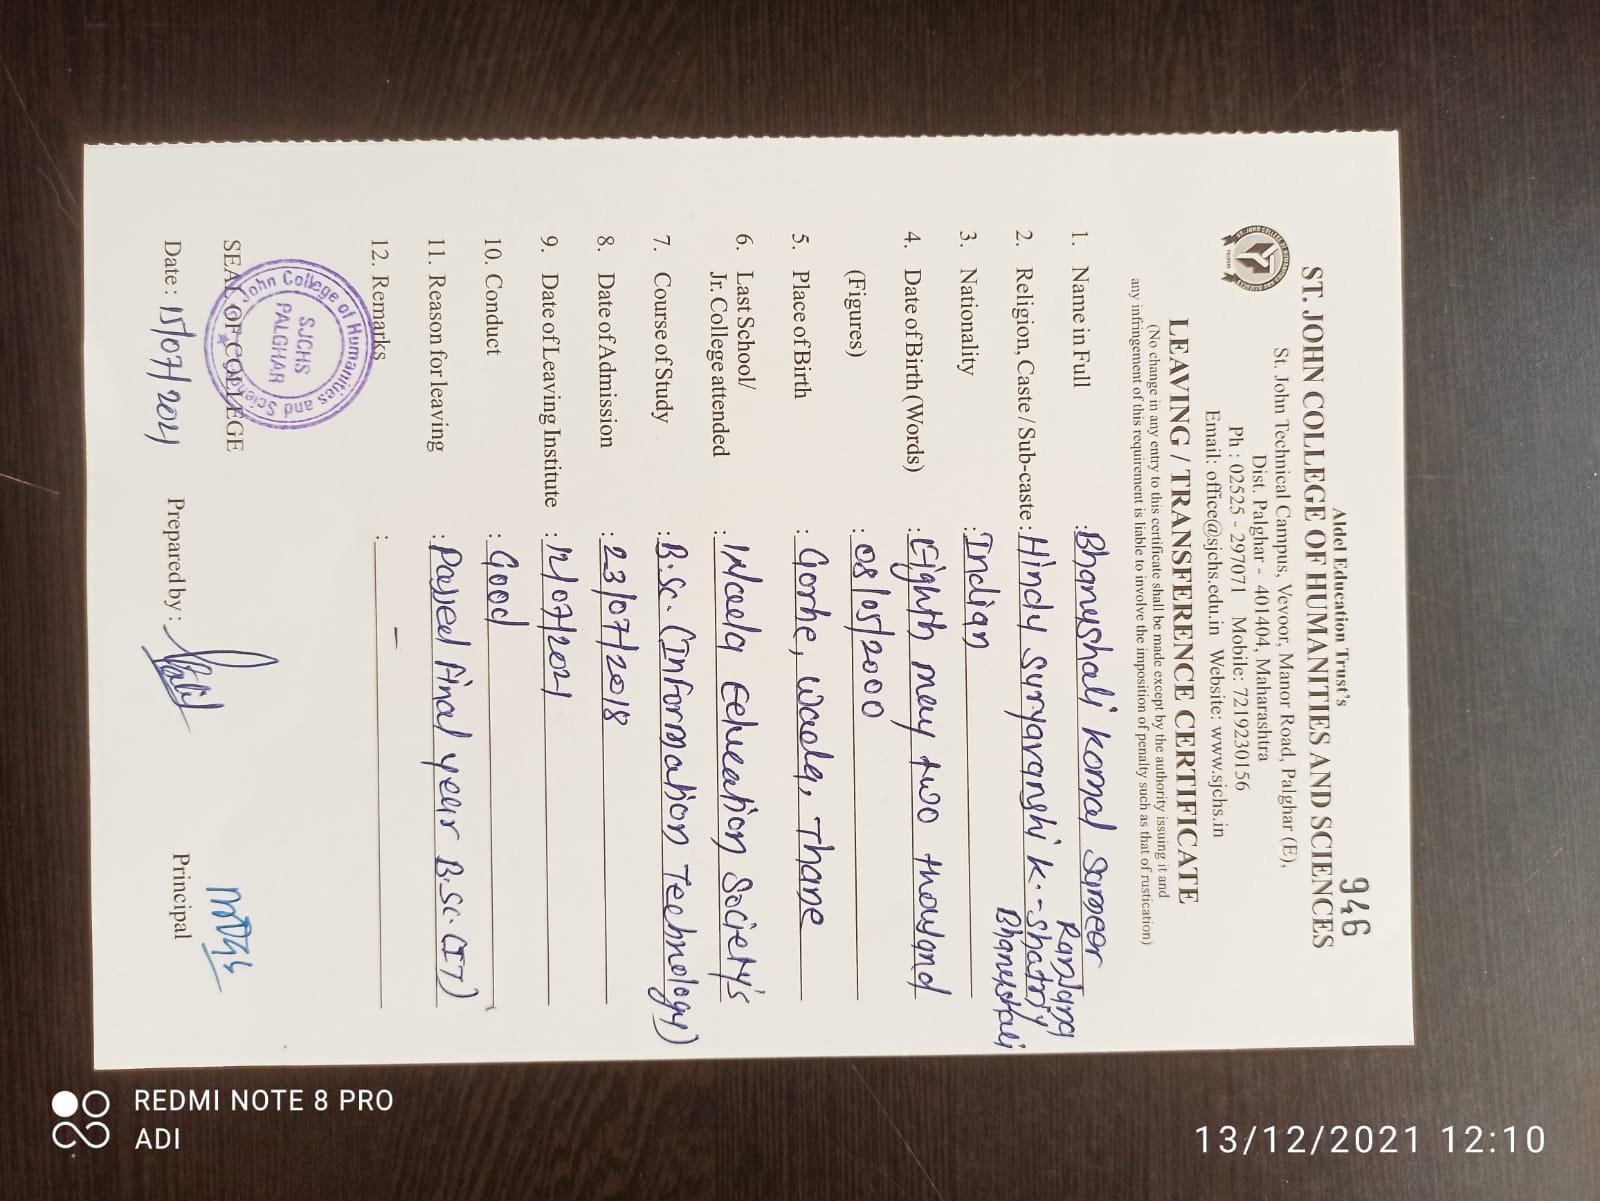 946
Aldel Education Trust's
ST. JOHN COLLEGE OF HUMANITIES AND SCIENCES
St. John Technical Campus, Vevoor, Manor Road, Palghar (E),
Dist. Palghar - 401404, Maharashtra
Ph : 02525 - 297071 Mobile: 7219230156
Email: office@sjchs.edu.in Website: www.sjchs.in
LEAVING / TRANSFERENCE CERTIFICATE
(No change in any entry to this certificate shall be made except by the authority issuing it and
any infringement of this requirement is liable to involve the imposition of penalty such as that of rustication)
1. Name in Full : Bhanushali Komal Sameer
Ranjana
2. Religion, Caste / Sub-caste : Hindu Suryavanshi K.-Shatriy
Bhanushali
3. Nationality : Indian
4. Date of Birth (Words) : Eighth may two thousand
(Figures) : 08/05/2000
5. Place of Birth : Gorhe, Wada, Thane
6. Last School/
Jr. College attended : Wada Education Society's
7. Course of Study : B.Sc. (Information Technology)
8. Date of Admission : 23/07/2018
9. Date of Leaving Institute : 12/07/2021
10. Conduct : Good
11. Reason for leaving : Passed final year B.Sc.(IT)
12. Remarks : –
SEAL OF COLLEGE
St. John College of Humanities and Sciences
SJCHS
PALGHAR
Date : 15/07/2021 Prepared by : Principal
REDMI NOTE 8 PRO
ADI
13/12/2021 12:10